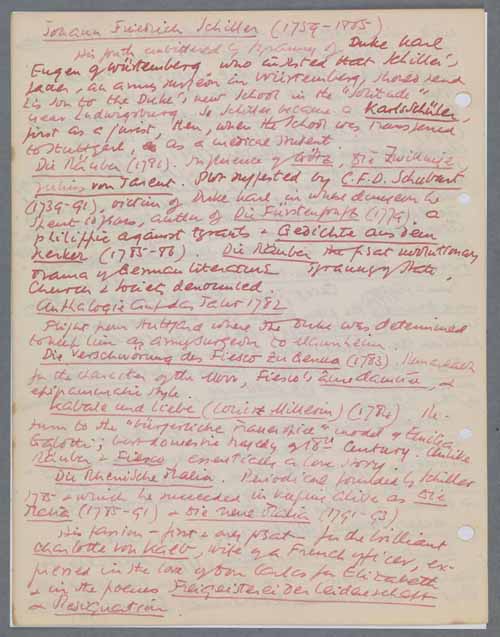 Johann Friedrich Schiller (1759 - 1805)
His youth embittered by tyranny of Duke Karl
Eugen of Württemberg who insisted that Schiller's
father, an army surgeon in Württemberg, should send
his son to the Duke's new School in the "Solitude"
near Ludwigsburg. So Schiller became a Karlsschüler,
first as a jurist, then, when the School was transferred
to Stuttgart, as a medical student.
Die Räuber (1781). Influence of Götz, Die Zwillinge,
Julius von Tarent. Plot suggested by C.F.D. Schubart
(1739-91), victim of Duke Karl in whose dungeon he
spent 10 years, author of Die Fürstengruft (1779), a
philippic against tyrants & Gedichte aus dem
Kerker (1785-86). Die Räuber the first revolutionary
drama of German literature. Tyranny of State,
Church & Society denounced.
Anthologie auf das Jahr 1782
Flight from Stuttgart where the Duke was determined
to keep him as army surgeon to Mannheim.
Die Verschwörung des Fiesco zu Genua (1783).
for the character of the Moor, Fiesco's &
epigrammatic style.
Kabale und Liebe (Louise Millerin) (1784). Re-
turn to the "bürgerliche Trauerspiel" model of Emilia
Galotti; best domestic tragedy of 18th century. Unlike
Räuber & Fiesco essentially a love story.
Die Rheinische Thalia. Periodical founded by Schiller
1785 & which he succeeded in keeping alive as Die
Thalia (1785-91) & Die neue Thalia (1791-93)
His passion - first & only great - for the brilliant
Charlotte von Kalb, wife of a French officer, ex-
pressed in the love of Don Carlos for Elizabeth
& in the poems Freigeisterei der Leidenschaft
& Resignation.